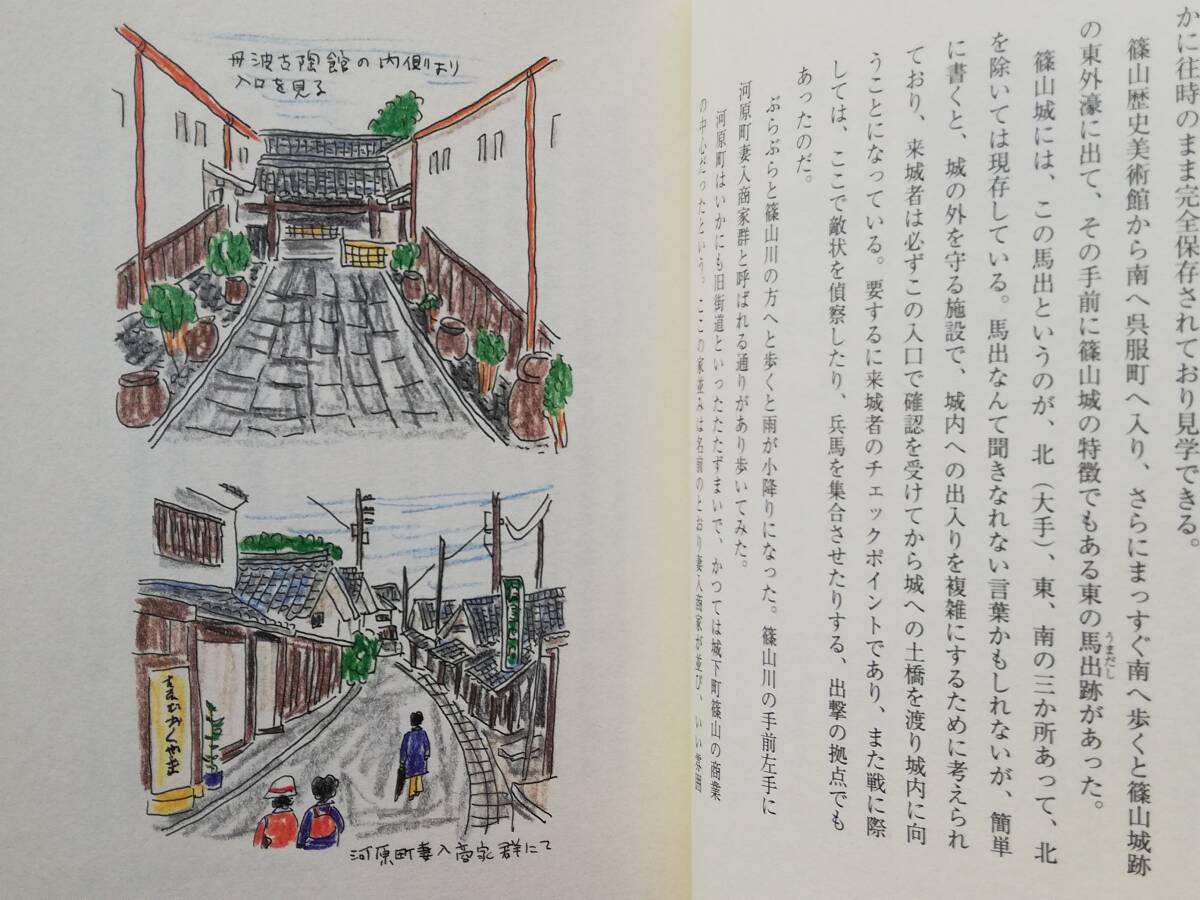 かに往時のまま完全保存されており見学できる。
篠山歴史美術館から南へ呉服町へ入り、さらにまっすぐ南へ歩くと篠山城跡
の東外濠に出て、その手前に篠山城の特徴でもある東の馬出跡があった。
うまだし
篠山城には、この馬出というのが、北（大手）、東、南の三か所あって、北
を除いては現存している。馬出なんて聞きなれない言葉かもしれないが、簡単
に書くと、城の外を守る施設で、城内への出入りを複雑にするために考えられ
ており、来城者は必ずこの入口で確認を受けてから城への土橋を渡り城内に向
うことになっている。要するに来城者のチェックポイントであり、また戦に際
しては、ここで敵状を偵察したり、兵馬を集合させたりする、出撃の拠点でも
あったのだ。
ぶらぶらと篠山川の方へと歩くと雨が小降りになった。篠山川の手前左手に
河原町妻入商家群と呼ばれる通りがあり歩いてみた。
河原町はいかにも旧街道といったたたずまいで、かつては城下町篠山の商業
の中心だったという。ここの家並みは名前のとおり妻入商家が並び、いい雰囲
丹波古陶館の内側より
入口を見る
河原町妻入商家群にて